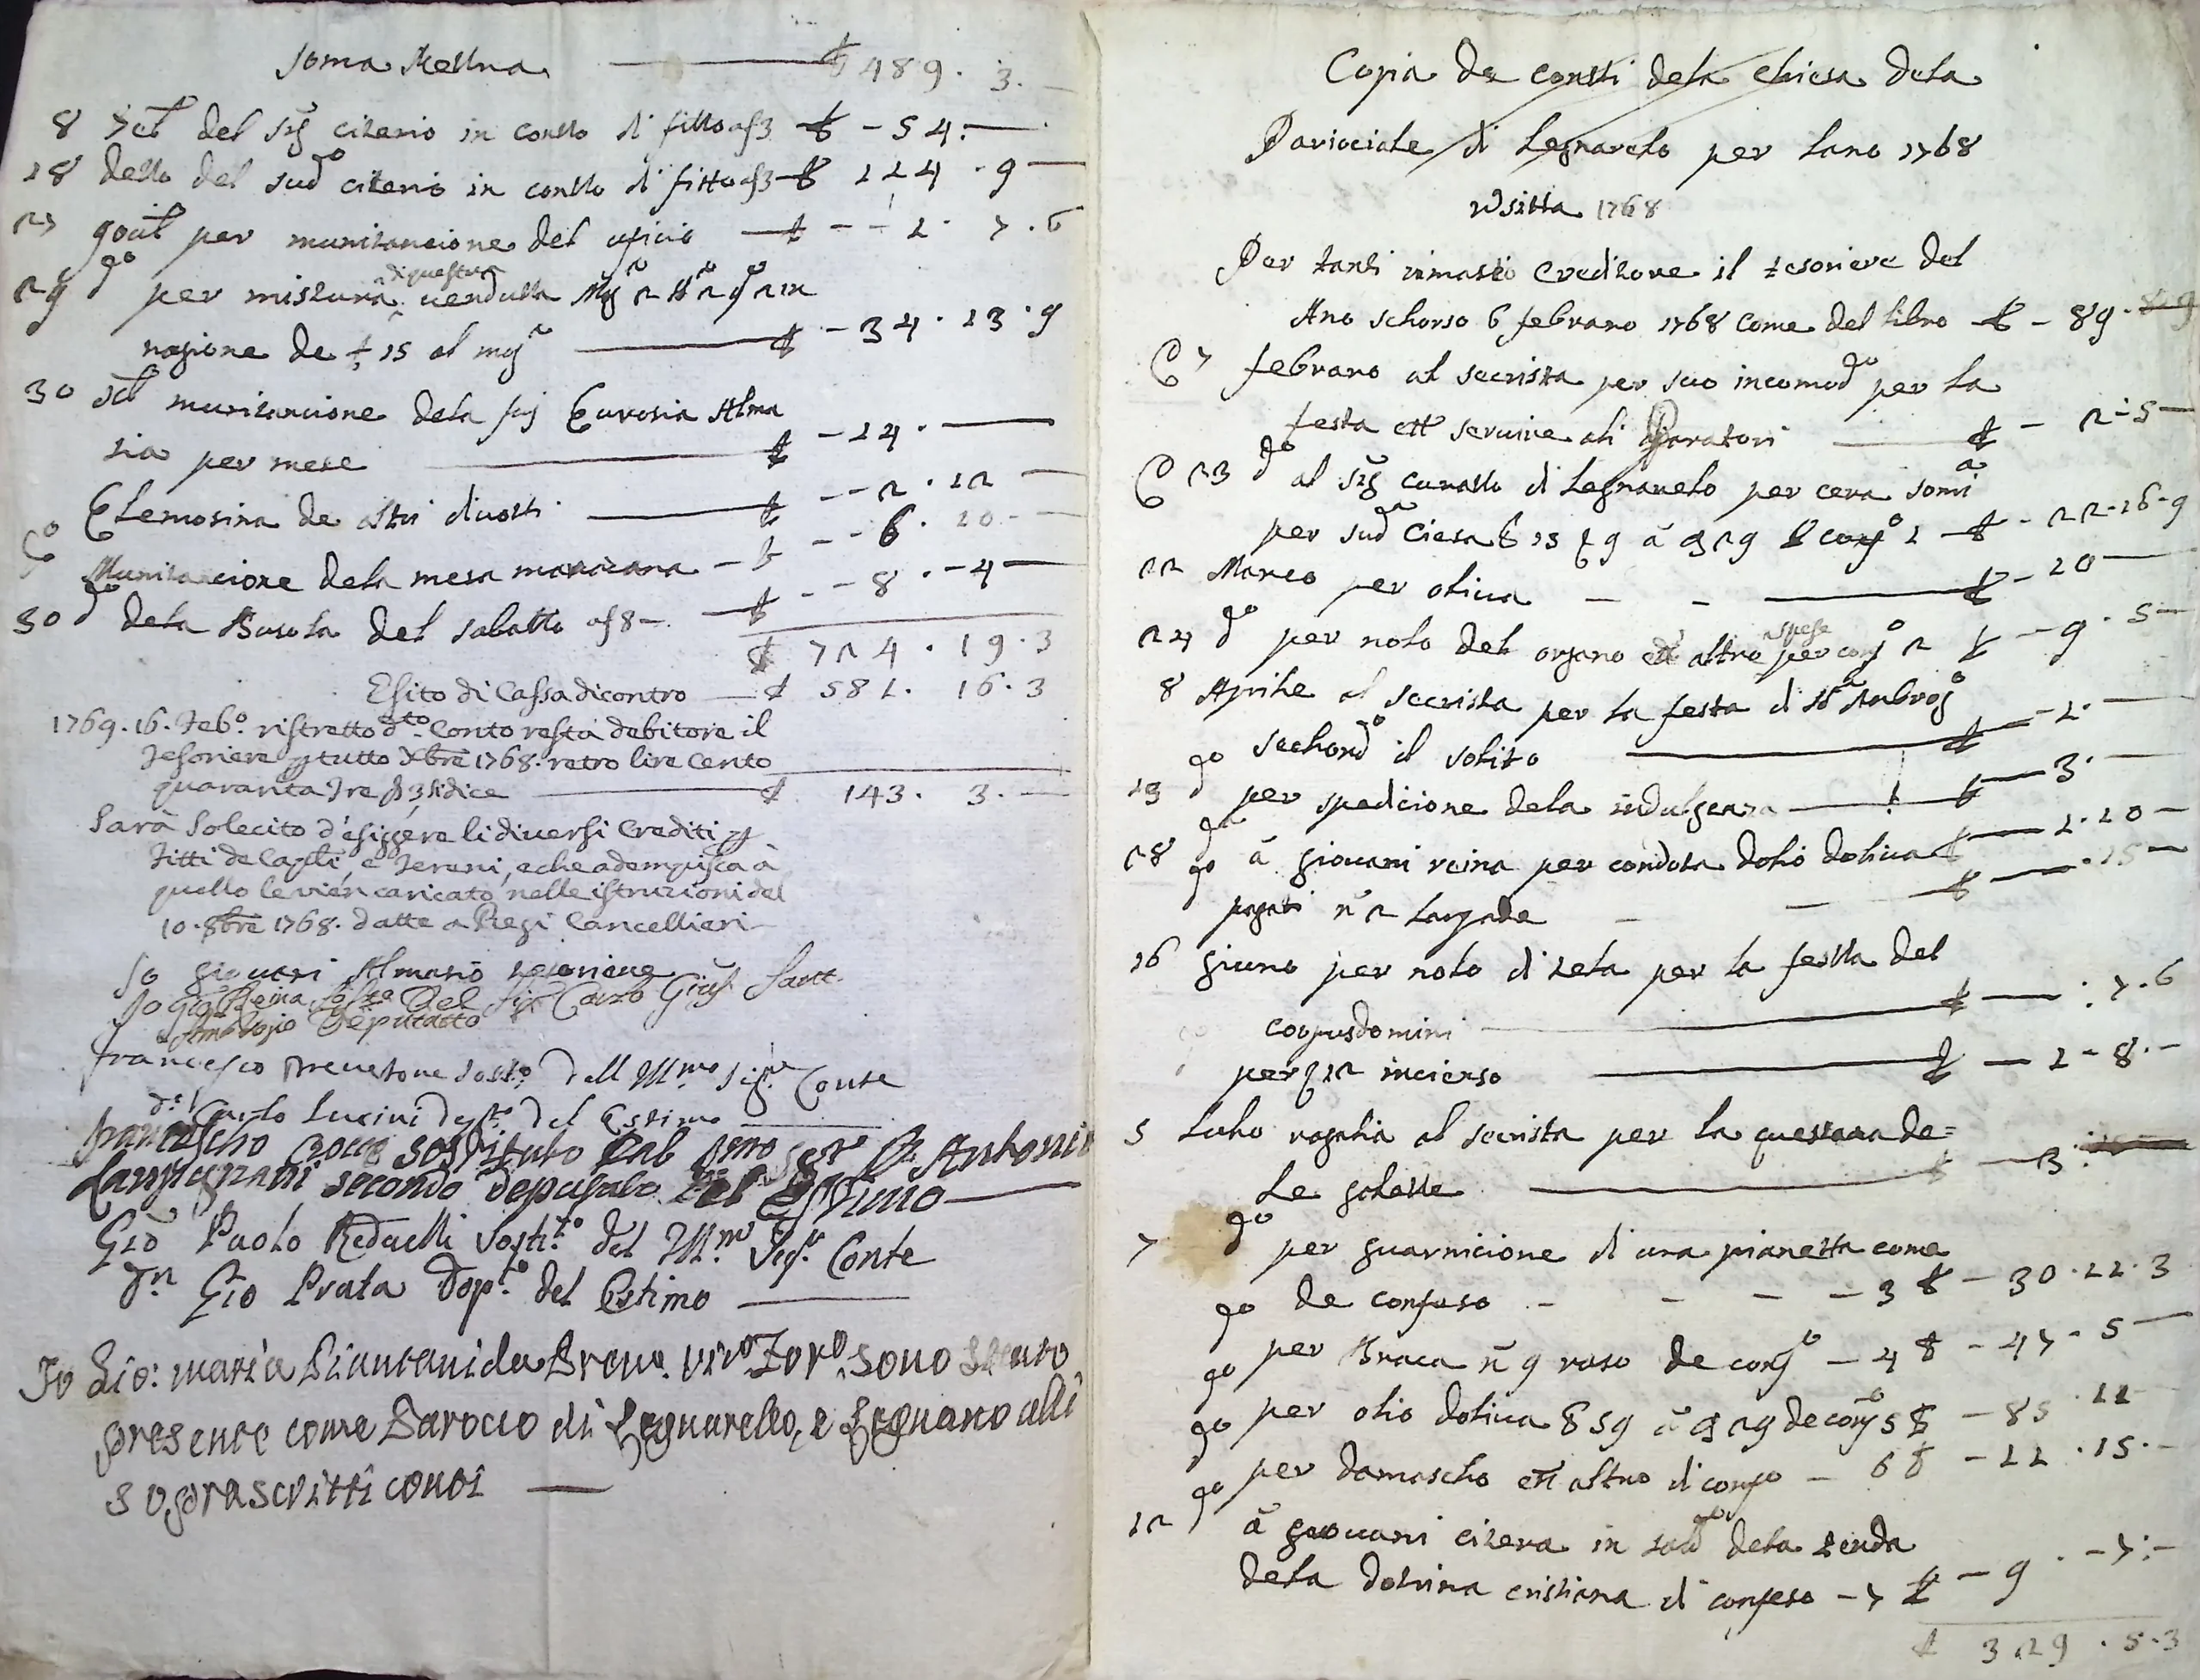 Soma Retrua £ 489. 3. —
8 7cb del sig citerio in contto di fitto £ - 54. —
18 detto del sudº citerio in contto di fitto £ 114 . 9 —
per munitancione del oficio £ - - 1. 7. 6
29 dº per mistura di questua uendutta
ragione de £ 15 al mog £ - 34. 13. 9
30 munitancione dela Eurosia Alma
sia per mese £ - 14. —
Elemosina de altri diuotti £ - - 2. 12 —
Munitancione dela mesa £ - - 6. 10 - -
30 dº dela Busola del sabatto £ - - 8. - 4 —
£ 724. 19. 3
Esito di Cassa dicontro £ 581. 16. 3
1769. 16. Febº. ristretto dtº. Conto resta debitore il
Tesoriere p tutto Xbre 1768. retro lire Cento
quaranta Tre £ 143. 3. —
Sarà Solecito d'esiggere li diuersi Crediti p
Fitti de Capli, e Tereni, e che adempisca à
quello le vien caricato nelle istruzioni del
10. 8bre 1768. datte a Regi Cancellieri
Io giouani Almasio tesoriere
Io Gio Reina Del Sigr Carlo Gius.
Ambrosio Deputatto
francesco sostº. dell Illmo Sigr. Conte
Dn Carlo Lucini deptº. del Estimo
francescho rocco sostituto Dal Sigr Dn Antonio
Lampugnani secondo deputato Del Estimo —
Gio Paolo Redaelli Sostitº. del Illmo Sigr. Conte
Dn Gio Prata Deptº. del Estimo —
Io Gio: maria Biancani da sono statto
presente come Parocco di Legnarello, e Legnano alli
sopra scritti conti —
Copia de contti dela chiesa dela
Parociale di Legnarelo per lano 1768
Visitta 1768
Per tanti rimasto Creditore il tesoriere del
Ano schorso 6 febraro 1768 come del libro £ - 89.
7 febraro al secrista per suo incomodº per la
festa ett seruire ali Paratori £ - 2 - 5 —
23 dº al sig curatto di Legnarelo per cera
per sudª Ciesa £ - 22 - 16 - 9
22 Marco per oliua £ - 10 —
24 dº per nolo del organo ett altre spese per conf 2 £ - 9. 5 —
8 Aprile al secrista per la festa di St Anbrogº
sechondº il solito £ - 1. —
13 dº per spedicione dela indulgenza £ — 3. —
28 dº à giouani reina per condota dolio doliua £ — 1. 10 —
dº pagati nº 2 £ — . 15 —
16 giuno per nolo di tela per la festta del
corpusdomini £ — : 7. 6
per incienso £ — 1 - 8. —
5 Lulio regalia al secrista per la questtara de=
Le galette £ — 3 :
7 dº per guarnicione di una pianetta come
de confeso - - - - 3 £ - 30. 11. 3
dº per Braca nº 9 raso de confº - 4 £ - 47 - 5 —
dº per olio doliua de confº 5 £ - 85. 11
dº per damascho ett altro di confº - 6 £ - 11. 15. -
12 dº à giouani citera in dela tenda
dela dotrina cristiana di confeso - 7 £ - 9. - 7: -
£ 329. 5. 3